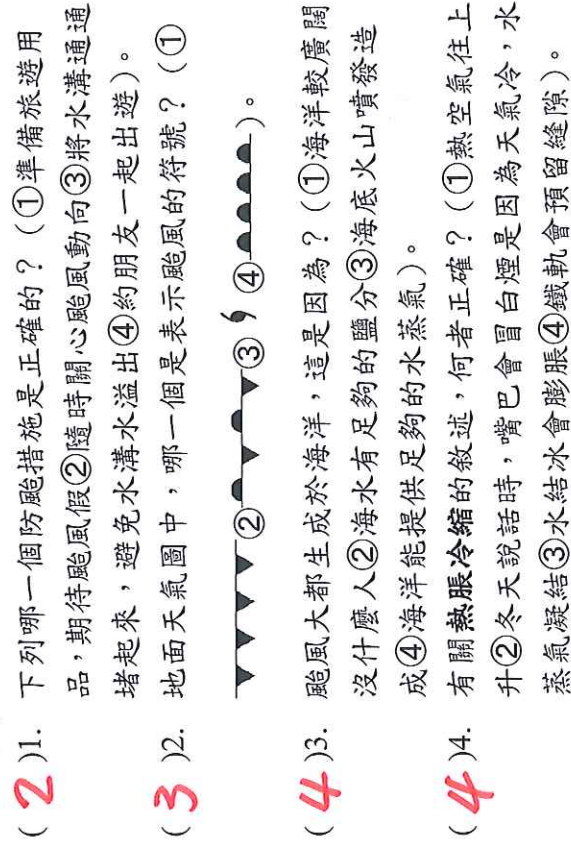 ( 2 )1. 下列哪一個防颱措施是正確的？（①準備旅遊用
品，期待颱風假②隨時關心颱風動向③將水溝通通
堵起來，避免水溝水溢出④約朋友一起出遊）。
( 3 )2. 地面天氣圖中，哪一個是表示颱風的符號？（①
② ③ ④ ）。
( 4 )3. 颱風大都生成於海洋，這是因為？（①海洋較廣闊
沒什麼人②海水有足夠的鹽分③海底火山噴發造
成④海洋能提供足夠的水蒸氣）。
( 4 )4. 有關熱脹冷縮的敘述，何者正確？（①熱空氣往上
升②冬天說話時，嘴巴會冒白煙是因為天氣冷，水
蒸氣凝結③水結冰會膨脹④鐵軌會預留縫隙）。